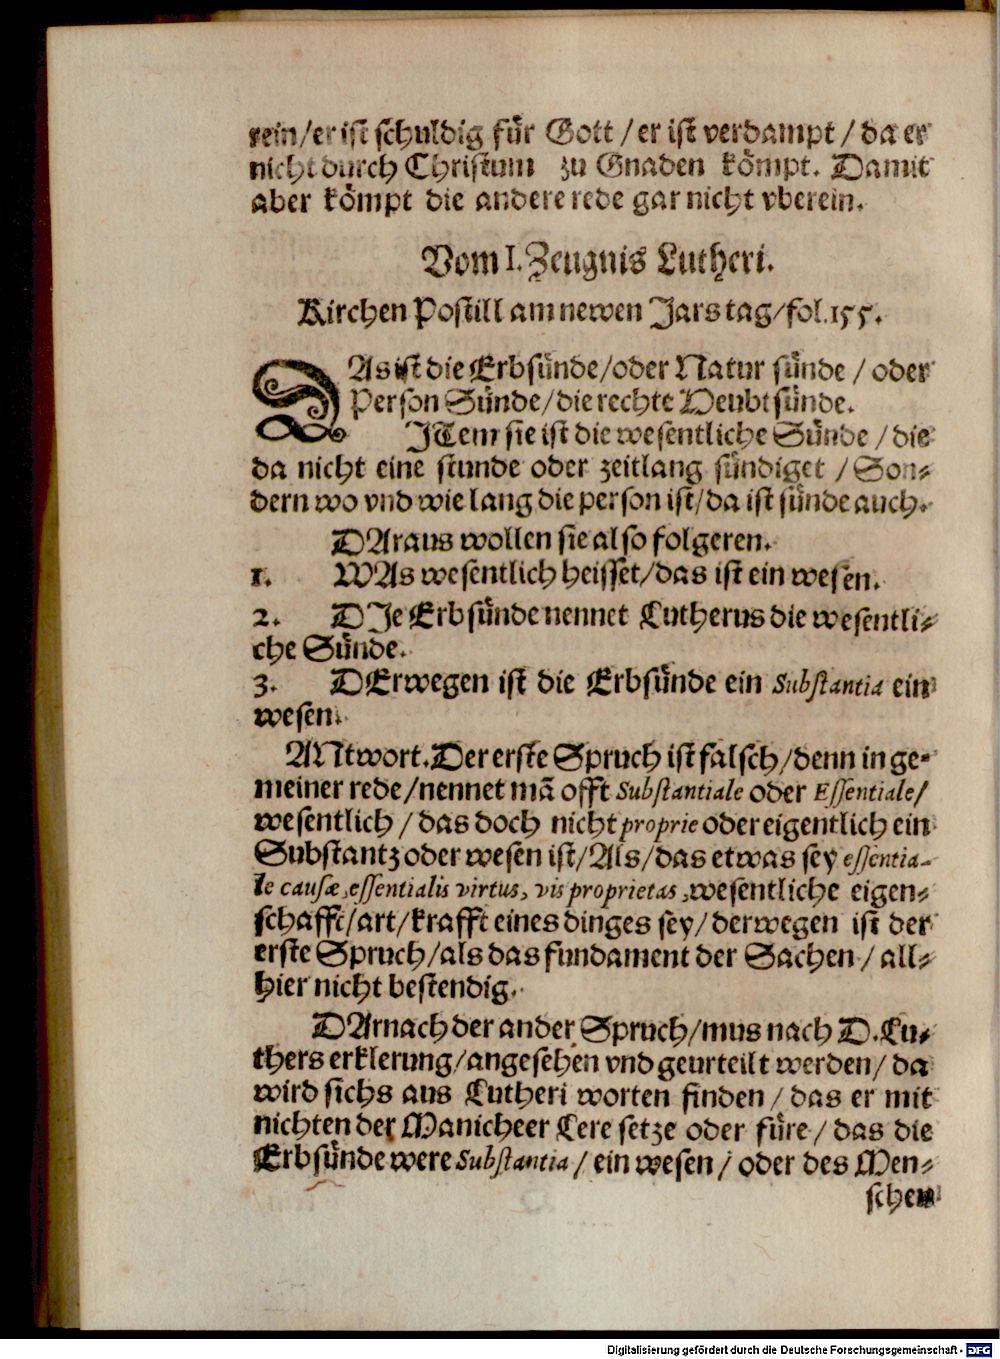 rein/er ist schuldig für Gott/er ist verdampt/da er
nicht durch Christum zu Gnaden kömpt. Damit
aber kömpt die andere rede gar nicht vberein.
Vom I. Zeugnis Lutheri.
Kirchen Postill am newen Jars tag/fol.155.
DAs ist die Erbsünde/oder Natur sünde/oder
Person Sünde/die rechte Heubt sünde.
JTem sie ist die wesentliche Sünde/die
da nicht eine stunde oder zeitlang sündiget/Son⸗
dern wo vnd wie lang die person ist/da ist sünde auch.
DAraus wollen sie also folgeren.
1. WAs wesentlich heisset/das ist ein wesen.
2. DJe Erbsünde nennet Lutherus die wesentli⸗
che Sünde.
3. DErwegen ist die Erbsünde ein Substantia ein
wesen.
ANtwort. Der erste Spruch ist falsch/denn in ge⸗
meiner rede/nennet mã offt Substantiale oder Essentiale/
wesentlich/das doch nicht proprie oder eigentlich ein
Substantz oder wesen ist/Als/das etwas sey essentia-
le causæ, essentialis virtus, vis proprietas, wesentliche eigen⸗
schafft/art/krafft eines dinges sey/derwegen ist der
erste Spruch/als das fundament der Sachen/all⸗
hier nicht bestendig.
DArnach der ander Spruch/mus nach D. Lu⸗
thers erklerung/angesehen vnd geurteilt werden/da
wird sichs aus Lutheri worten finden/das er mit
nichten der Manicheer Lere setze oder füre/das die
Erbsünde were Substantia/ein wesen/oder des Men⸗
schen
Digitalisierung gefördert durch die Deutsche Forschungsgemeinschaft - DFG